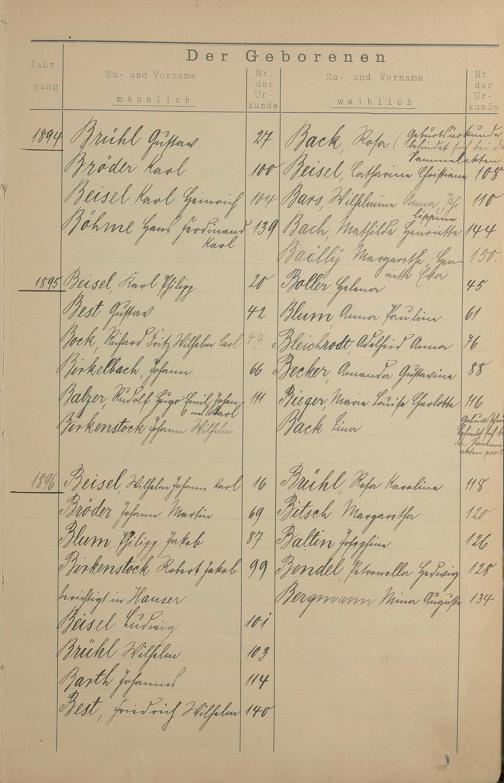 Der Geborenen
Jahr-
gang
Zu- und Vorname
männlich
Nr.
der
Ur-
kunde
Zu- und Vorname
weiblich
Nr.
der
Ur-
kunde
1894 Brühl Gustav 27
Bröder Karl 100
Beisel Karl Heinrich 104
Böhme Hans Ferdinand 139
Karl
1895 Beisel Karl Philipp 20
Best Gustav 42
Bock, Richard Fritz Wilhelm Carl 47
Birkelbach, Johann 66
Balzer, Rudolf Hugo Emil Johann 111
Karl
Birkenstock Johann Wilhelm
1896 Beisel, Wilhelm Johann Karl 16
Bröder Johann Martin 69
Blum, Philipp Jakob 87
Birkenstock Robert Jakob 99
berichtigt in Hauser
Beisel Ludwig 101
Brühl Wilhelm 103
Barth Johannes 114
Best, Friedrich Wilhelm 140
Back, Rosa (Geburtsurkunde
befindet sich bei den
Sammelakten
Beisel, Catharina Christiane 108
Bars, Wilhelmine Anna 110
Bach, Mathilde Henriette 144
Bailly Margarethe 150
Boller Helena 45
Blum, Anna Paulina 61
Bleichrodt Adelheid Anna 76
Becker, Amanda Gustavine 88
Bieger, Maria Louise Charlotte 116
Back Lina
Brühl, Rosa Karoline 118
Bitsch Margaretha 120
Baltin Josephine 126
Bendel, Petronella Hedwig 128
Bergmann Mina Auguste 134